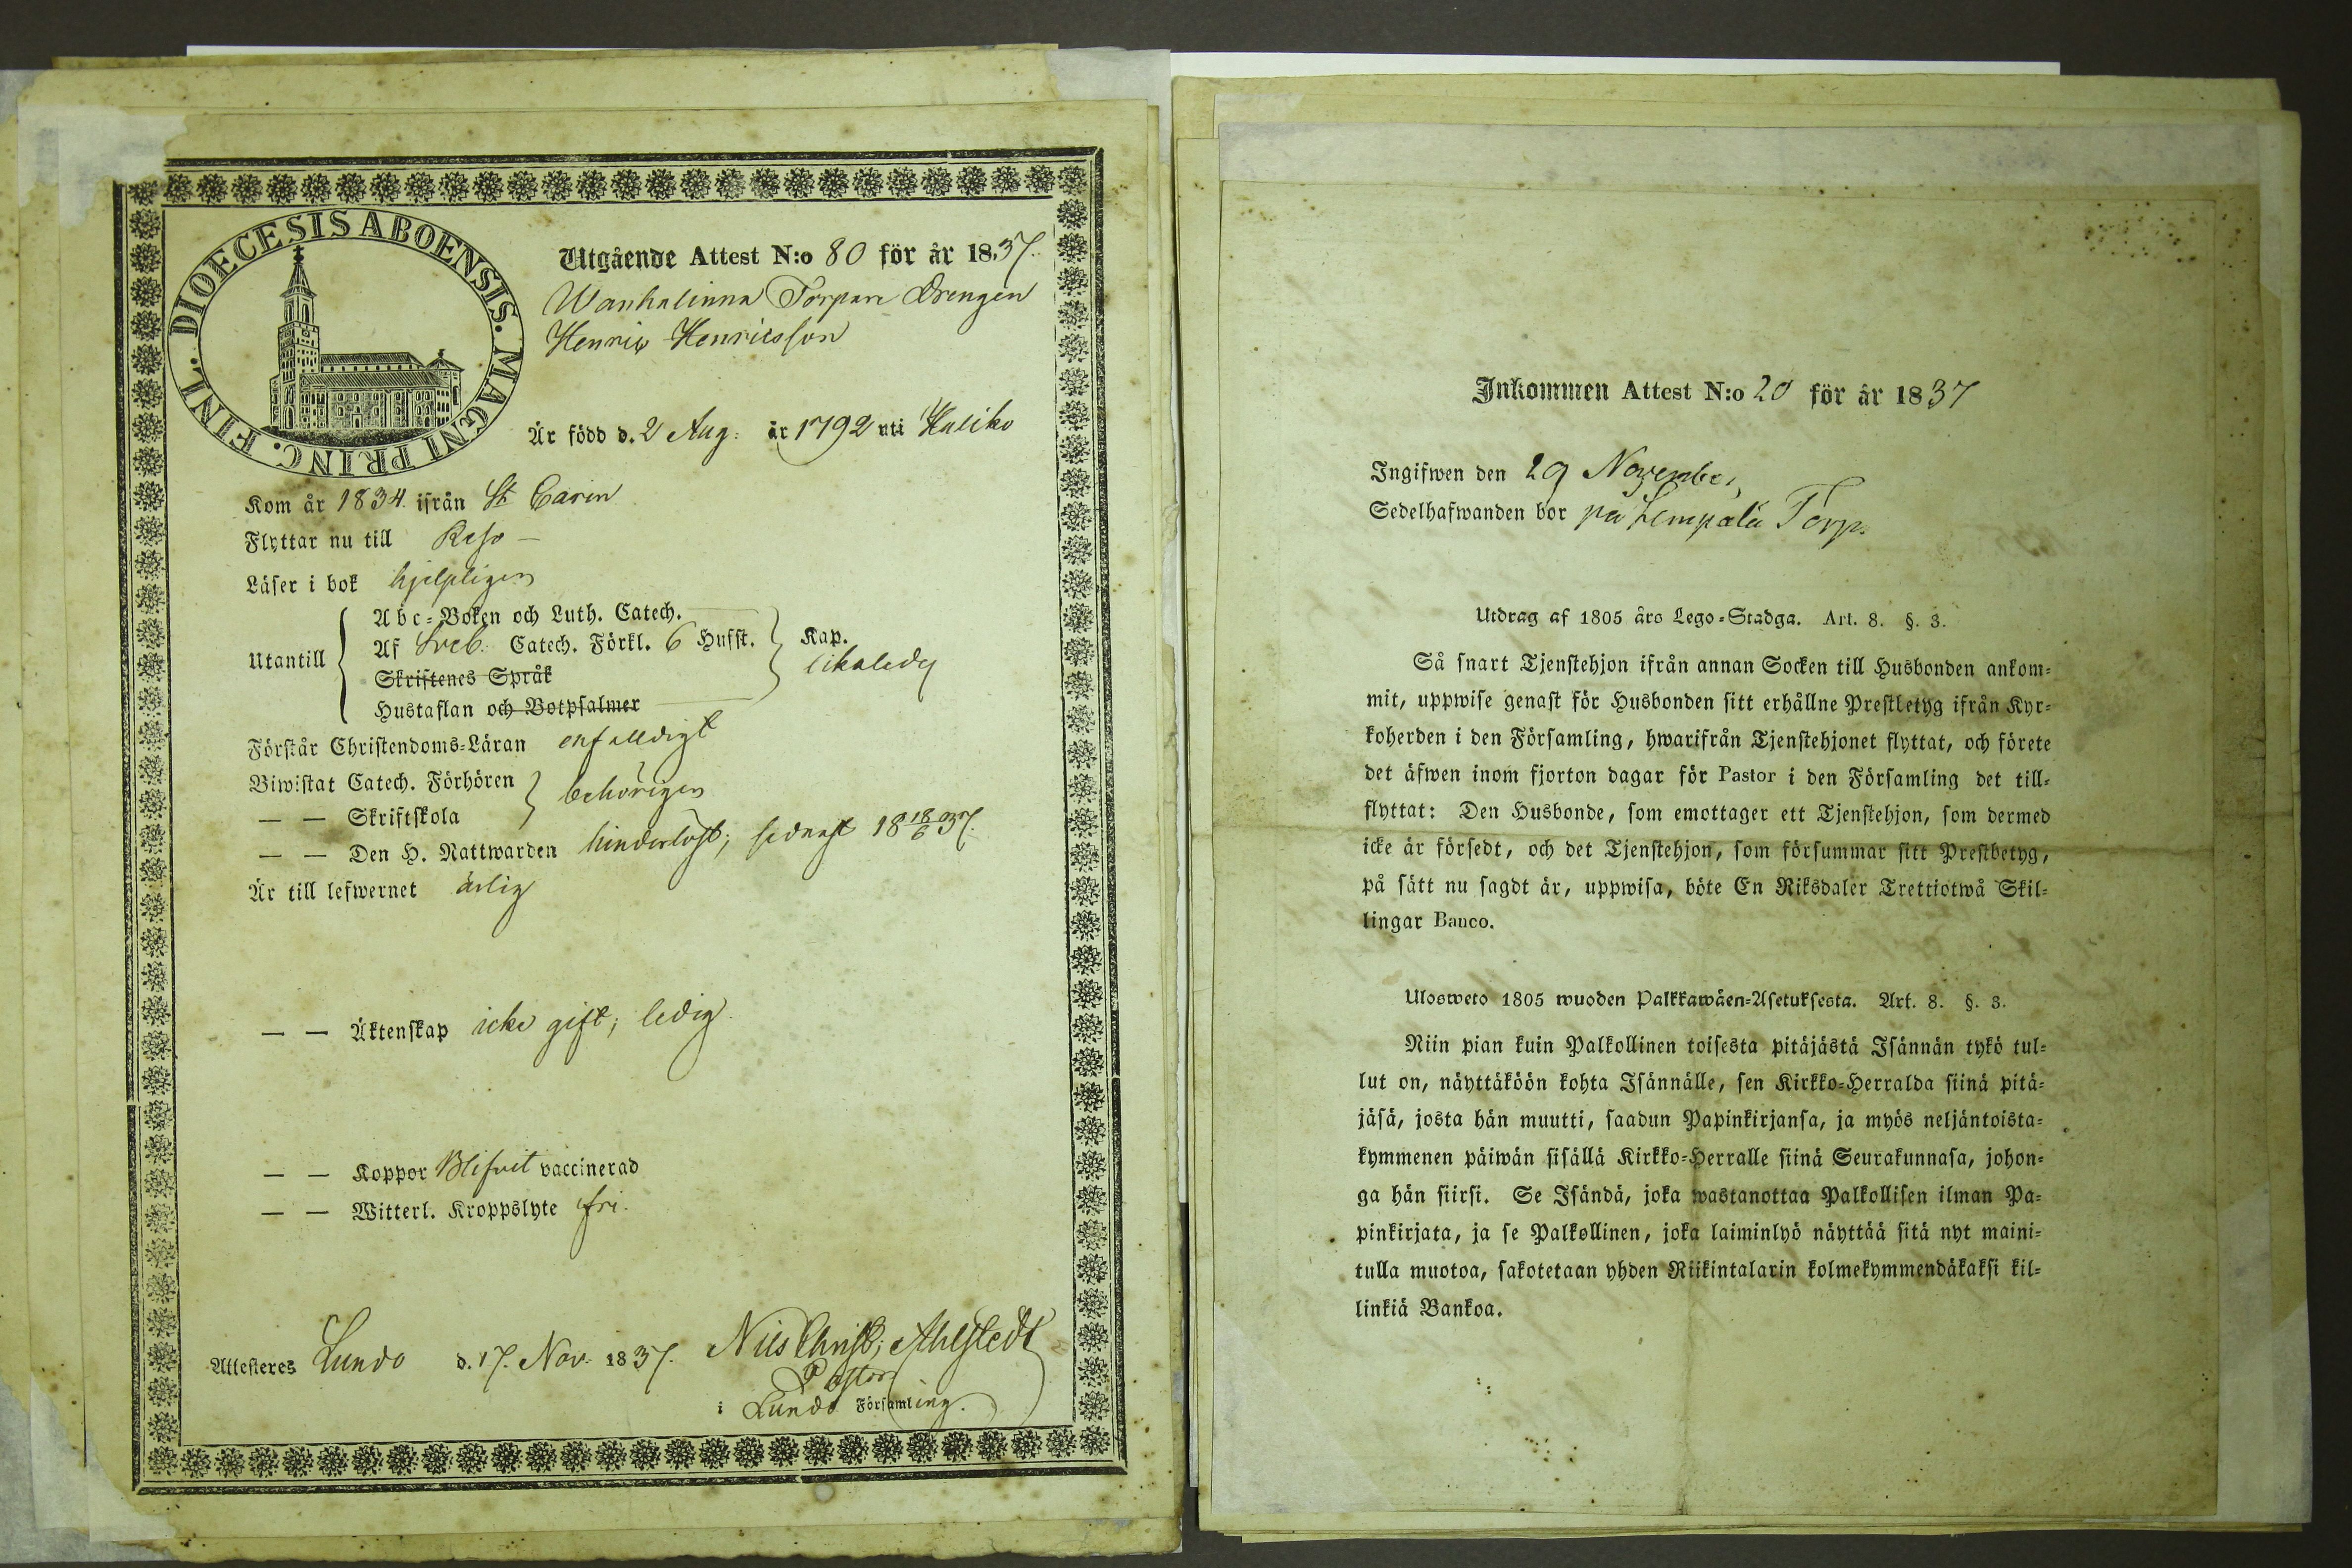 DIOECESIS ABOENSIS. MAGNI PRINC. FINL.
Utgående Attest N:o 80 för år 1837.
Wanhalinna Torpare Drengen
Henric Henricsson
Är född d. 2 Aug: år 1792 uti Haliko
Kom år 1834. ifrån St Carin
Flyttar nu till Reso –
Läser i bok hjelpligen
Utantill
Abc-Boken och Luth. Catech.
Af Sveb. Catech. Förkl. 6 Hufst.
Skriftenes Språk
Hustaflan och Botpsalmer
Kap.
likaledes
Förstår Christendoms-Läran enfalldigt
Biwistat Catech. Förhören
— — Skriftskola
behörigen
— — Den H. Nattwarden hinderlöst; sednast 18 18/6 37.
Är till lefwernet ärlig
— — Äktenskap icke gift; ledig.
— — Koppor Blifvit vaccinerad
— — Witterl. Kroppslyte fri.
Attesteres Lundo d. 17. Nov. 1837. Nils Christ; Ahlstedt
Pastor
i Lundo Församling.
Inkommen Attest N:o 20 för år 1837
Ingifwen den 29 November
Sedelhafwanden bor på Lempälä Torp.
Utdrag af 1805 års Lego-Stadga. Art. 8. §. 3.
Så snart Tjenstehjon ifrån annan Socken till Husbonden ankom-
mit, uppwise genast för Husbonden sitt erhållne Prestletyg ifrån Kyr-
koherden i den Församling, hwarifrån Tjenstehjonet flyttat, och förete
det äfwen inom fjorton dagar för Pastor i den Församling det till-
flyttat: Den Husbonde, som emottager ett Tjenstehjon, som dermed
icke är försedt, och det Tjenstehjon, som försummar sitt Prestbetyg,
på sätt nu sagdt är, uppwisa, böte En Riksdaler Trettiotwå Skil-
lingar Banco.
Ulosweto 1805 wuoden Palkkawäen-Asetuksesta. Art. 8. §. 3.
Niin pian kuin Palkollinen toisesta pitäjästä Isännän tykö tul-
lut on, näyttäköön kohta Isännälle, sen Kirkko-Herralda siinä pitä-
jäsä, josta hän muutti, saadun Papinkirjansa, ja myös neljäntoista-
kymmenen päiwän sisällä Kirkko-Herralle siinä Seurakunnasa, johon-
ga hän siirsi. Se Isändä, joka wastanottaa Palkollisen ilman Pa-
pinkirjata, ja se Palkollinen, joka laiminlyö näyttää sitä nyt maini-
tulla muotoa, sakotetaan yhden Riikintalarin kolmekymmendäkaksi kil-
linkiä Bankoa.